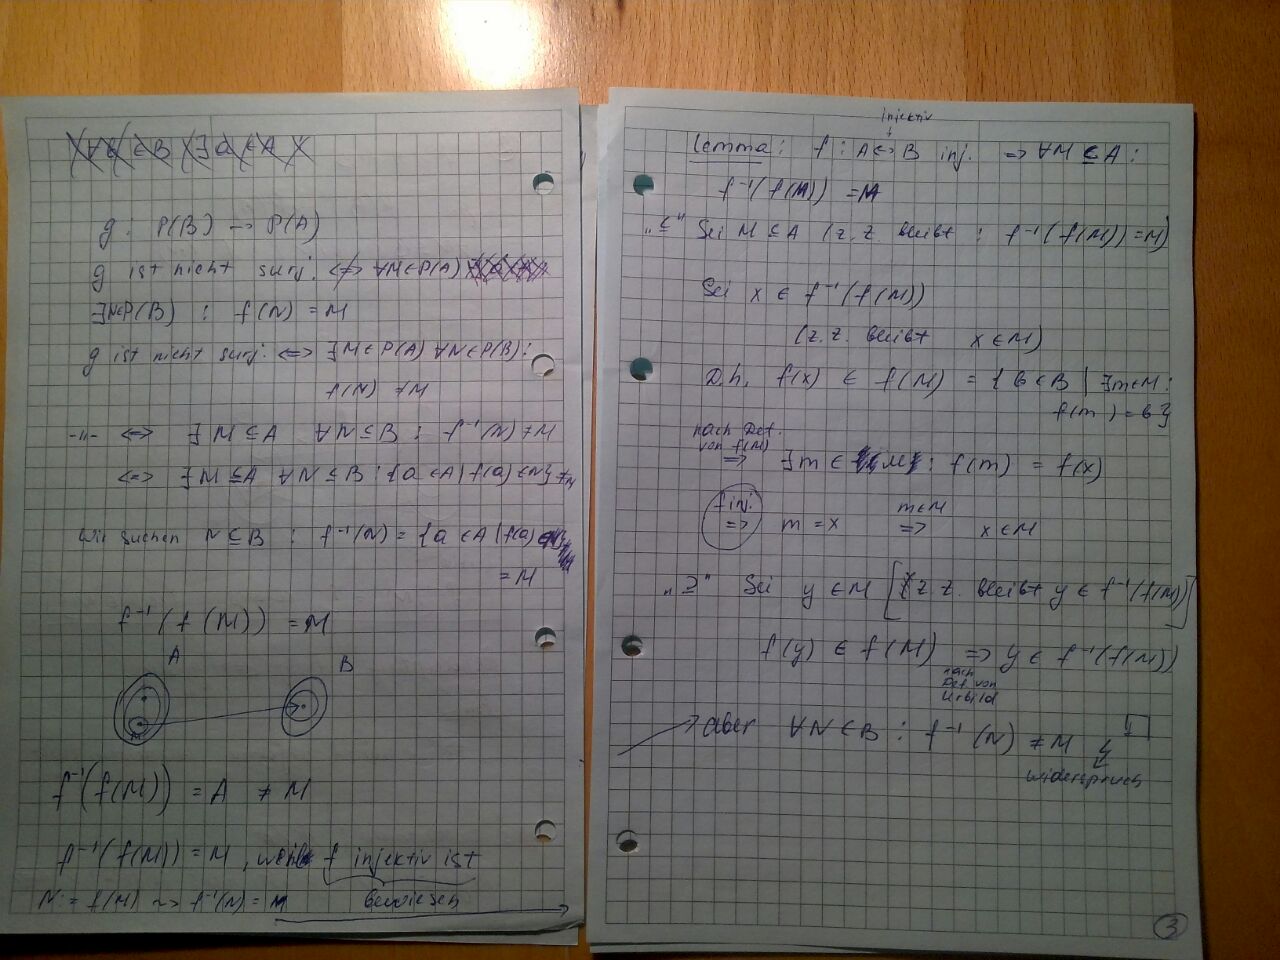 g : P(B) → P(A)
g ist nicht surj. <≠> ∀M∈P(A)
∃N∈P(B) : f(N) = M
g ist nicht surj. <=> ∃M∈P(A) ∀N∈P(B):
f(N) ≠ M
-"- <=> ∃ M ⊆ A ∀N ⊆ B : f⁻¹(N) ≠ M
<=> ∃ M ⊆ A ∀N ⊆ B : {a ∈ A | f(a) ∈ N} ≠ M
Wir suchen N ⊆ B : f⁻¹(N) = {a ∈ A | f(a)
= M
f⁻¹(f(M)) = M
A B
M
f⁻¹(f(M)) = A ≠ M
f⁻¹(f(M)) = M, weil f injektiv ist
bewiesen
N := f(M) ~> f⁻¹(N) = M
injektiv
Lemma: f : A ↪ B inj. => ∀M ⊆ A :
f⁻¹(f(M)) = M
"⊆" Sei M ⊆ A (z.z. bleibt : f⁻¹(f(M)) = M)
Sei x ∈ f⁻¹(f(M))
(z.z. bleibt x ∈ M)
D.h. f(x) ∈ f(M) = { b ∈ B | ∃m∈M :
f(m) = b }
nach Def.
von f(M)
=> ∃m ∈ M : f(m) = f(x)
f inj. m∈M
=> m = x => x ∈ M
"⊇" Sei y ∈ M [z.z. bleibt y ∈ f⁻¹(f(M))]
f(y) ∈ f(M) => y ∈ f⁻¹(f(M))
nach
Def von
Urbild
aber ∀N ∈ B : f⁻¹(N) ≠ M ↯
Widerspruch
3